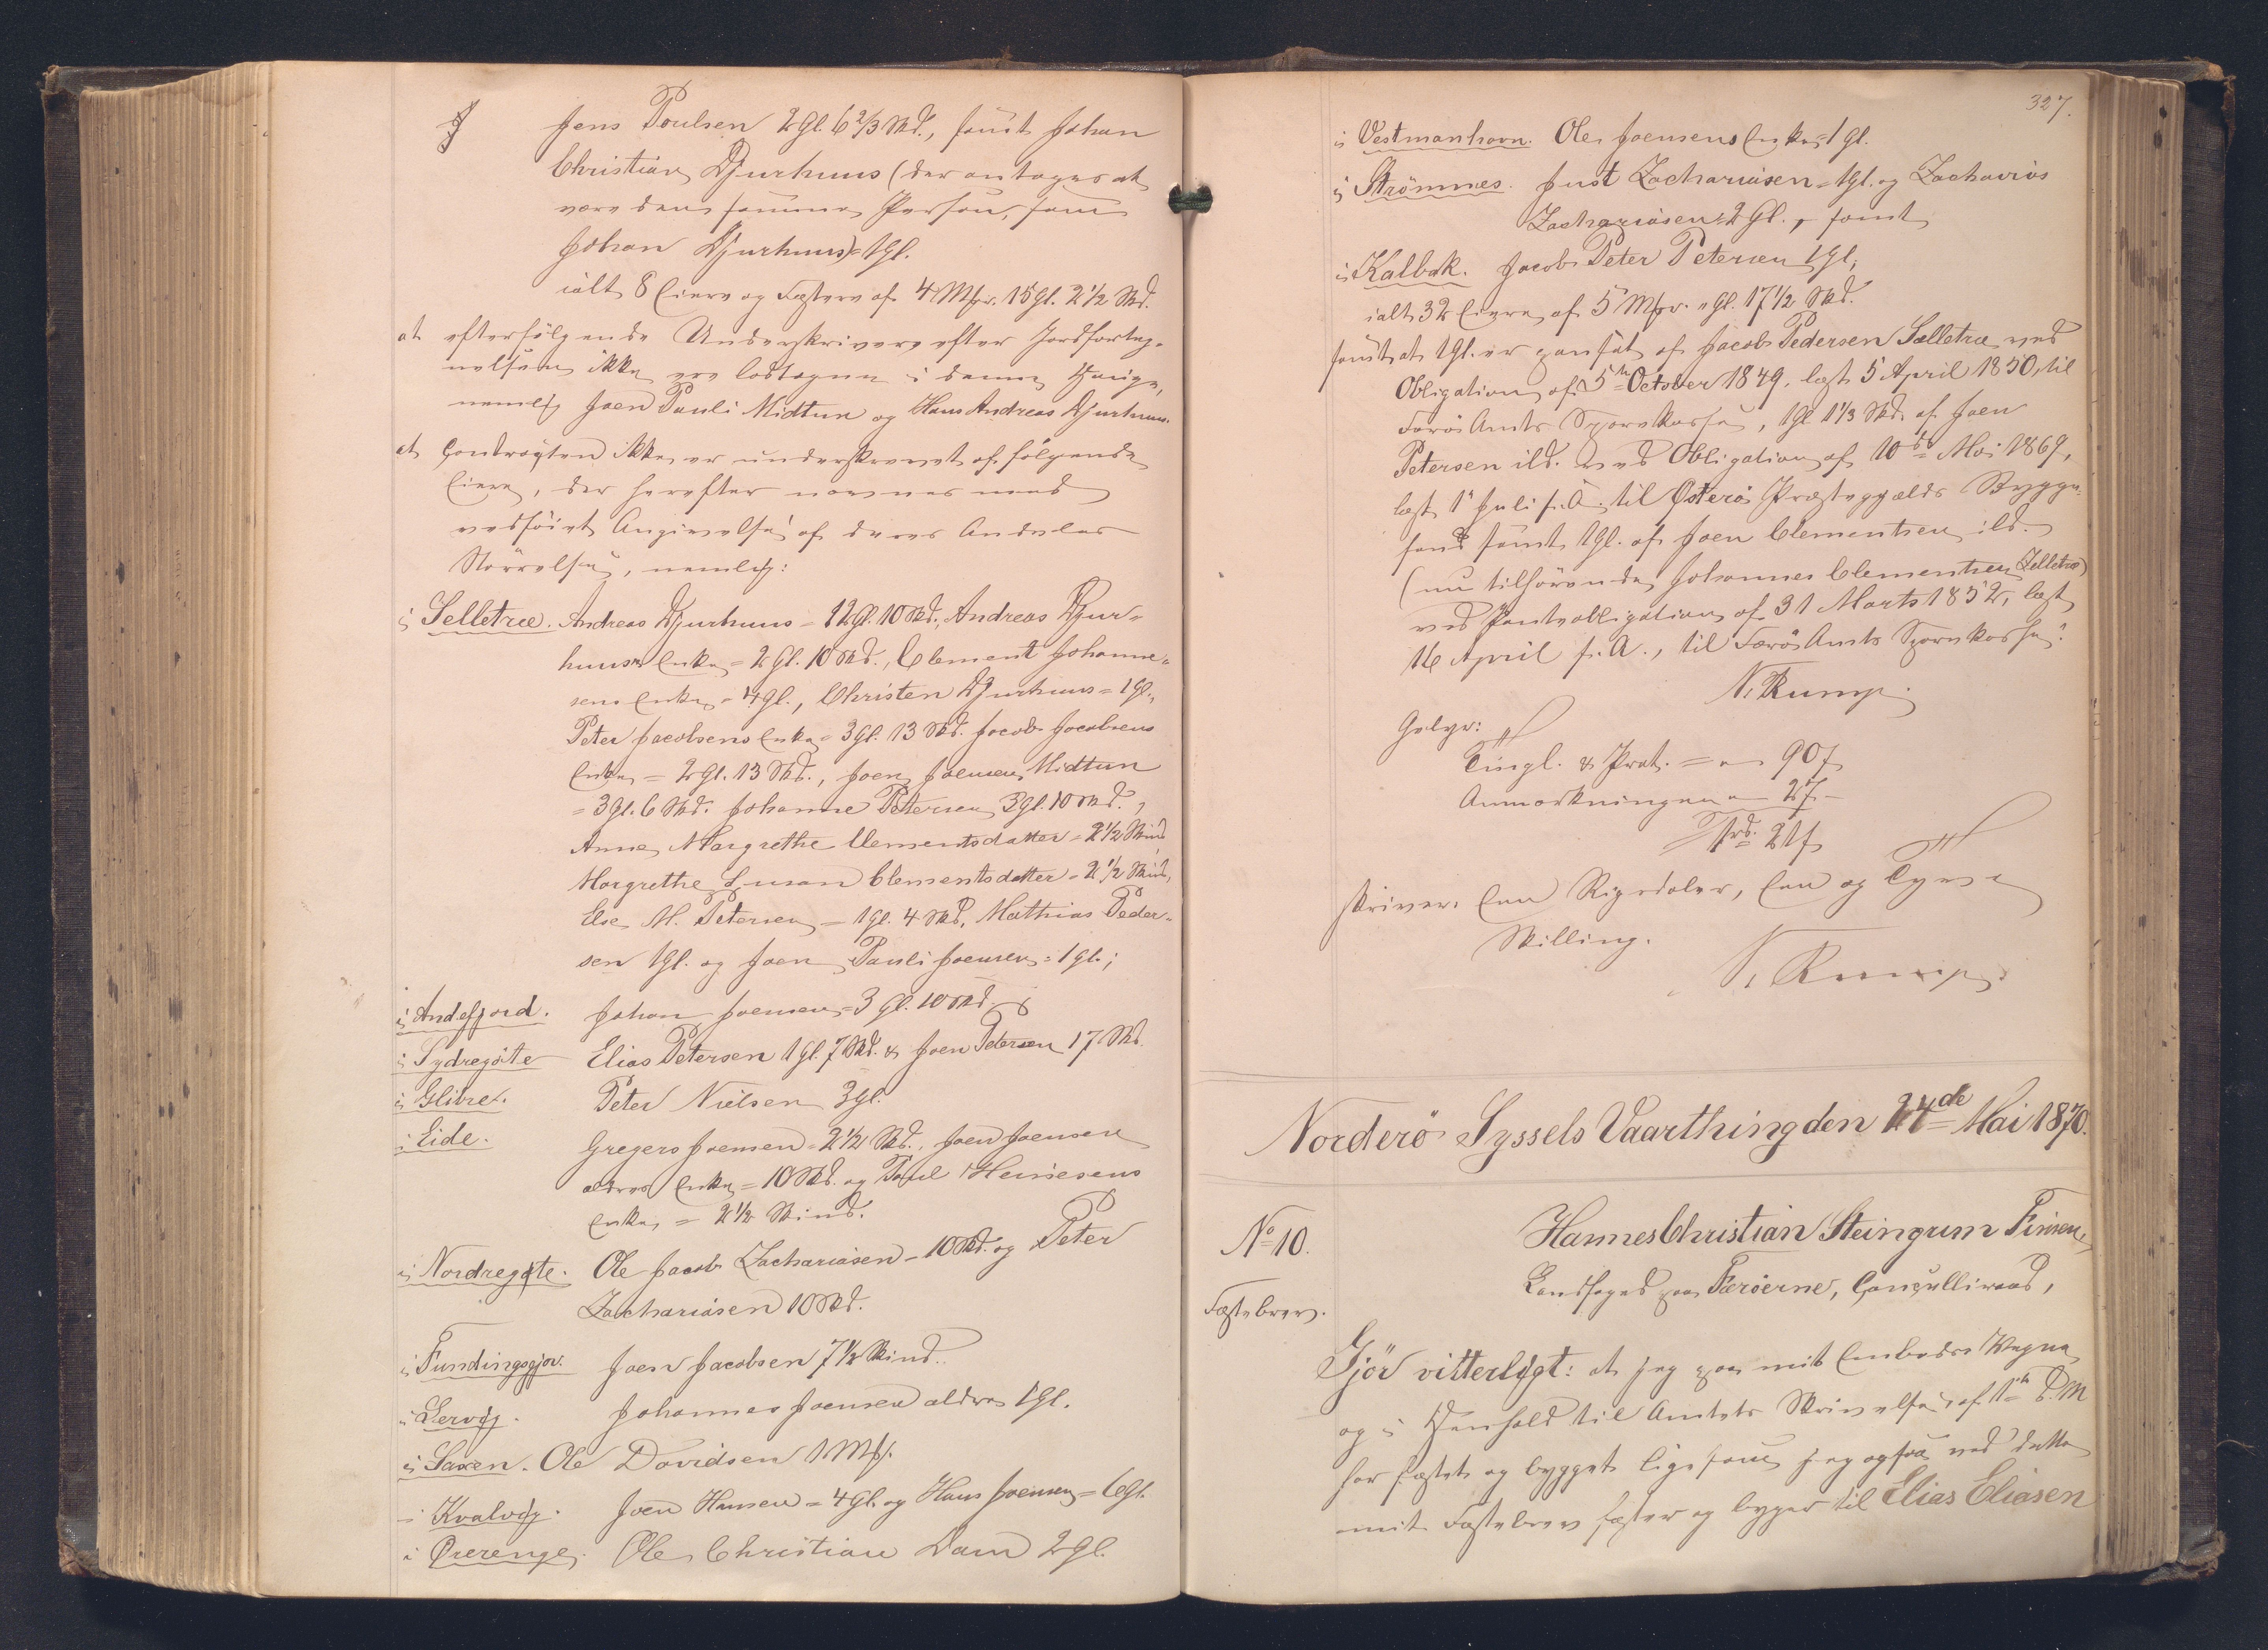 Jens Poulsen 2 Gl. 6 2/3 Skd., samt Johan
Christian Djurhuus (der antages at
være den samme Person, som
Johan Djurhuus) = 1 Gl.
ialt 8 Eiere og Fæstere af 4 Mkr. 15 Gl. 2 1/2 Skd.
at efterfølgende Underskrivere efter Jordforteg-
nelsen ikke ere lodtagne i denne Hauge,
nemlig Joen Pauli Midtun og Hans Andreas Djurhuus.
at Contracten ikke er underskrevet af følgende
Eiere, der herefter nævnes med
vedføiet Angivelse af deres Andeles
Størrelse, nemlig:
i Selletræ. Andreas Djurhuus = 12 Gl. 10 Skd., Andreas Djur-
huus's Enke = 2 Gl. 10 Skd., Clement Johanne-
sens Enke = 4 Gl., Christen Djurhuus = 1 Gl.,
Peter Jacobsens Enke = 3 Gl. 13 Skd. Jacob Jacobsens
Enke = 2 Gl. 13 Skd., Joen Joensen Midtun
= 3 Gl. 6 Skd. Johanne Petersen 3 Gl. 10 Skd.,
Anne Margrethe Clementsdatter = 2 1/2 Skind
Margrethe Susan Clementsdatter = 2 1/2 Skind,
Else M. Petersen = 1 Gl. 4 Skd., Mathias Peder-
sen 1 Gl. og Joen Pauli Joensen = 1 Gl.;
i Andefjord. Johan Joensen = 3 Gl. 10 Skd.
i Sydregöte Elias Petersen 1 Gl. 7 Skd. & Joen Petersen 17 Skd.
i Glibre. Peter Nielsen 3 Gl.
i Eide. Gregers Joensen = 2 1/2 Skd., Joen Joensens
ældres Enke = 10 Skd. og Poul Heinesens
Enke = 2 1/2 Skind.
i Nordregöte. Ole Jacob Zachariasen = 10 Skd. og Peter
Zachariasen 10 Skd.
i Fundingsgjov. Joen Jacobsen 7 1/2 Skind.
i Lervig. Johannes Joensen ældres 1 Gl.
i Saxen. Ole Davidsen 1 Mk.
i Kvalvig. Joen Hansen = 4 Gl. og Hans Joensen = 6 Gl.
i Qverenge. Ole Christian Dam 2 Gl.
327.
i Vestmanhavn. Ole Joensens Enke = 1 Gl.
i Strömnes. Just Zachariasen = 1 Gl. og Zacharias
Zachariasen = 2 Gl., samt
i Kalbak. Jacob Peter Petersen 1 Gl;
ialt 32 Eiere af 5 Mkr. " Gl. 17 1/2 Skd.
samt at 1 Gl. er pansat af Jacob Pedersen Sælletræ ved
Obligation af 5te October 1849, læst 5 April 1850, til
Færö Amts Sparekasse, 1 Gl 1 1/3 Skd. af Joen
Petersen ibd. ved Obligation af 10de Mai 1867,
læst 1 Juli s. A. til Österö Præstegjælds Bygge-
fond samt 1 Gl. af Joen Clementsen ibd.
(nu tilhörende Johannes Clementsen Zelletræ)
ved Pantobligation af 31 Marts 1852, læst
16 April s. A., til Færö Amts Sparekasse.
N. Rump.
Gebyr:
Tingl. & Prot. = " 90 ſ
Anmærkningen " 27 -
1 rd. 21 ſ
skriver Een Rigsdaler, Een og Tyve
Skilling.
N. Rump.
Norderö Syssels Vaarthing den 24de Mai 1870.
No 10.
Fæstebrev.
Hannes Christian Steingrim Finsen,
Landfoged paa Færöerne, Cancelliraad,
Gjör vitterligt: at jeg paa mit Embedes Vegne
og i Henhold til Amtets Skrivelse af 1ste d. M
har fæstet og bygget ligesom jeg ogsaa ved dette
mit Fæstebrev fæster og byger til Elias Eliasen